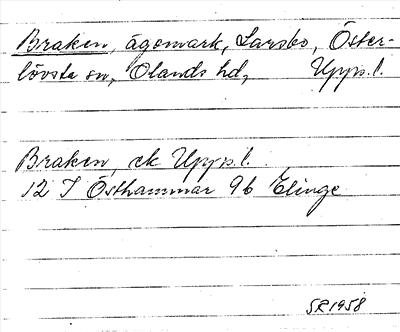 Braken, ägomark, Larsbo, Öster-
lövsta sn, Olands hd, Upps.l.
Braken, ek Upps.l.
12 I Östhammar 9b Elinge
SR 1958